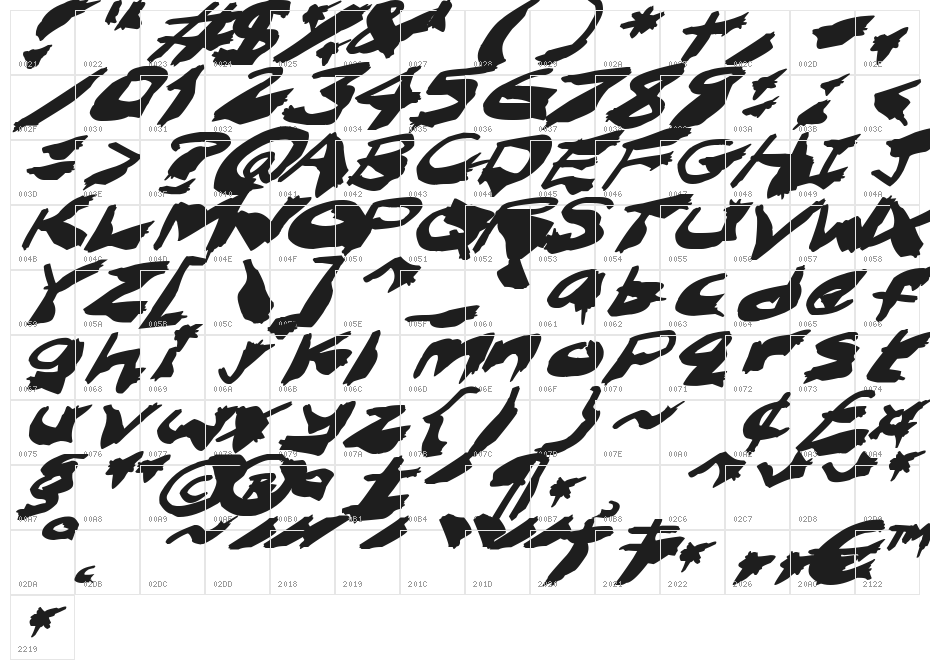 ! " # $ % & ' ( ) * + , - .
0021 0022 0023 0024 0025 0026 0027 0028 0029 002A 002B 002C 002D 002E
/ 0 1 2 3 4 5 6 7 8 9 : ; <
002F 0030 0031 0032 0034 0035 0036 0037 0038 0039 003A 003B 003C
= > ? @ A B C D E F G H I J
003D 003E 003F 0040 0041 0042 0043 0044 0045 0046 0047 0048 0049 004A
K L M N O P Q R S T U V W X
004B 004C 004D 004E 004F 0050 0051 0052 0054 0055 0056 0057 0058
Y Z [ \ ] ^ _ ` a b c d e f
0059 005A 005B 005C 005D 005E 005F 0060 0061 0062 0063 0064 0065 0066
g h i j k l m n o p q r s t
0067 0068 0069 006A 006B 006C 006D 006E 006F 0070 0071 0072 0073 0074
u v w x y z { | } ~ ¢ £ ¤
0075 0076 0077 0078 0079 007A 007B 007C 007D 007E 00A0 00A2 00A3 00A4
§ ¨ © ® ° ± ´ ¶ · ¸ ˆ ˇ ˘ ˙
00A7 00A8 00A9 00AE 00B0 00B1 00B4 00B6 00B7 00B8 02C6 02C7 02D8 02D9
˚ ˛ ˜ ˝ ‘ ’ “ ” † ‡ • … € ™
02DA 02DB 02DC 02DD 2018 2019 201C 201D 2020 2021 2022 2026 20AC 2122
∙
2219